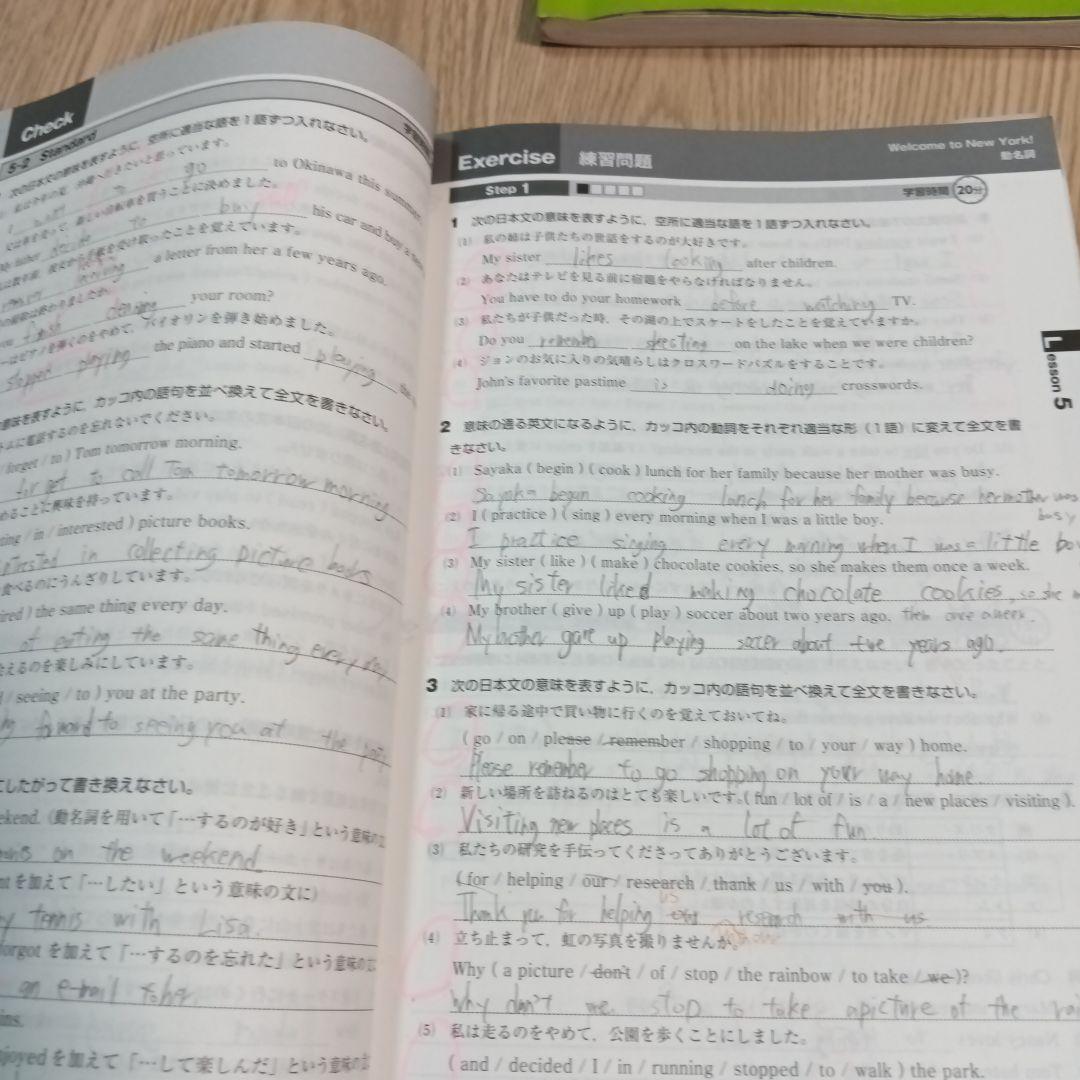 Check
5-2 Standard
次の日本文の意味を表すように，空所に適当な語を1語ずつ入れなさい。
go to Okinawa this summer
新しい自転車を買うことに決めました。
to buy his car and buy a
受け取ったことを覚えています。
a letter from her a few years ago.
cleaning your room?
ーはピアノを弾くのをやめて，バイオリンを弾き始めました。
stopped playing the piano and started playing the
意味を表すように，カッコ内の語句を並べ換えて全文を書きなさい。
ムに電話するのを忘れないでください。
forget / to ) Tom tomorrow morning.
forget to call Tom tomorrow morning
めることに興味を持っています。
ting / in / interested ) picture books.
in collecting picture books
食べるのにうんざりしています。
ired ) the same thing every day.
of eating the same thing every day
会えるのを楽しみにしています。
/ seeing / to ) you at the party.
forward to seeing you at the party
にしたがって書き換えなさい。
ekend. (動名詞を用いて「…するのが好き」という意味の
on the weekend
を加えて「…したい」という意味の文に)
tennis with Lisa.
forgot を加えて「…するのを忘れた」という意味の
an e-mail to her
ins.
njoyed を加えて「…して楽しんだ」という意味の
Exercise 練習問題
Welcome to New York!
動名詞
Step 1
学習時間 20分
1 次の日本文の意味を表すように，空所に適当な語を1語ずつ入れなさい。
(1) 私の姉は子供たちの世話をするのが大好きです。
My sister likes looking after children.
(2) あなたはテレビを見る前に宿題をやらなければなりません。
You have to do your homework before watching TV.
(3) 私たちが子供だった時，その湖の上でスケートをしたことを覚えていますか。
Do you remember skecting on the lake when we were children?
(4) ジョンのお気に入りの気晴らしはクロスワードパズルをすることです。
John's favorite pastime is doing crosswords.
Lesson 5
2 意味の通る英文になるように，カッコ内の動詞をそれぞれ適当な形（1語）に変えて全文を書
きなさい。
(1) Sayaka ( begin ) ( cook ) lunch for her family because her mother was busy.
Sayaka began cooking lunch for her family because her mother was
busy
(2) I ( practice ) ( sing ) every morning when I was a little boy.
I practice singing every morning when I was a little boy
(3) My sister ( like ) ( make ) chocolate cookies, so she makes them once a week.
My sister liked making chocolate cookies, so she
them once a week.
(4) My brother ( give ) up ( play ) soccer about two years ago.
My brother gave up playing soccer about two years ago.
3 次の日本文の意味を表すように，カッコ内の語句を並べ換えて全文を書きなさい。
(1) 家に帰る途中で買い物に行くのを覚えておいてね。
( go / on / please / remember / shopping / to / your / way ) home.
Please remember to go shopping on your way home
(2) 新しい場所を訪ねるのはとても楽しいです。( fun / lot of / is / a / new places / visiting ).
Visiting new places is a lot of fun
(3) 私たちの研究を手伝ってくださってありがとうございます。
( for / helping / our / research / thank / us / with / you ).
us
Thank you for helping our research with us.
(4) 立ち止まって，虹の写真を撮りませんか。
Why ( a picture / don't / of / stop / the rainbow / to take / we )?
Why don't we stop to take a picture of the rai
(5) 私は走るのをやめて，公園を歩くことにしました。
( and / decided / I / in / running / stopped / to / walk ) the park.